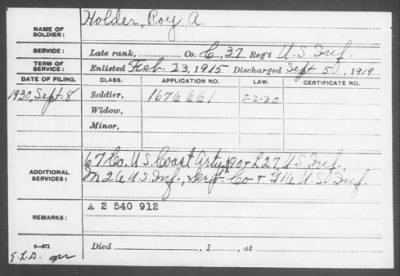 NAME OF SOLDIER: Holder, Roy A.
SERVICE: Late rank, Co. C, 37 Reg't U.S. Inf.
TERM OF SERVICE: Enlisted Feb. 23, 1915 Discharged Sept 5, 1919
DATE OF FILING. CLASS. APPLICATION NO. LAW. CERTIFICATE NO.
1930, Sept. 8 Soldier, 1676661
Widow,
Minor,
ADDITIONAL SERVICES: 67 Co. U.S. Coast Arty, 27 U.S. Inf.
M 26 U.S. Inf., Serv. Co + U.S. Inf.
REMARKS: A 2 540 912
Died , 1 , at